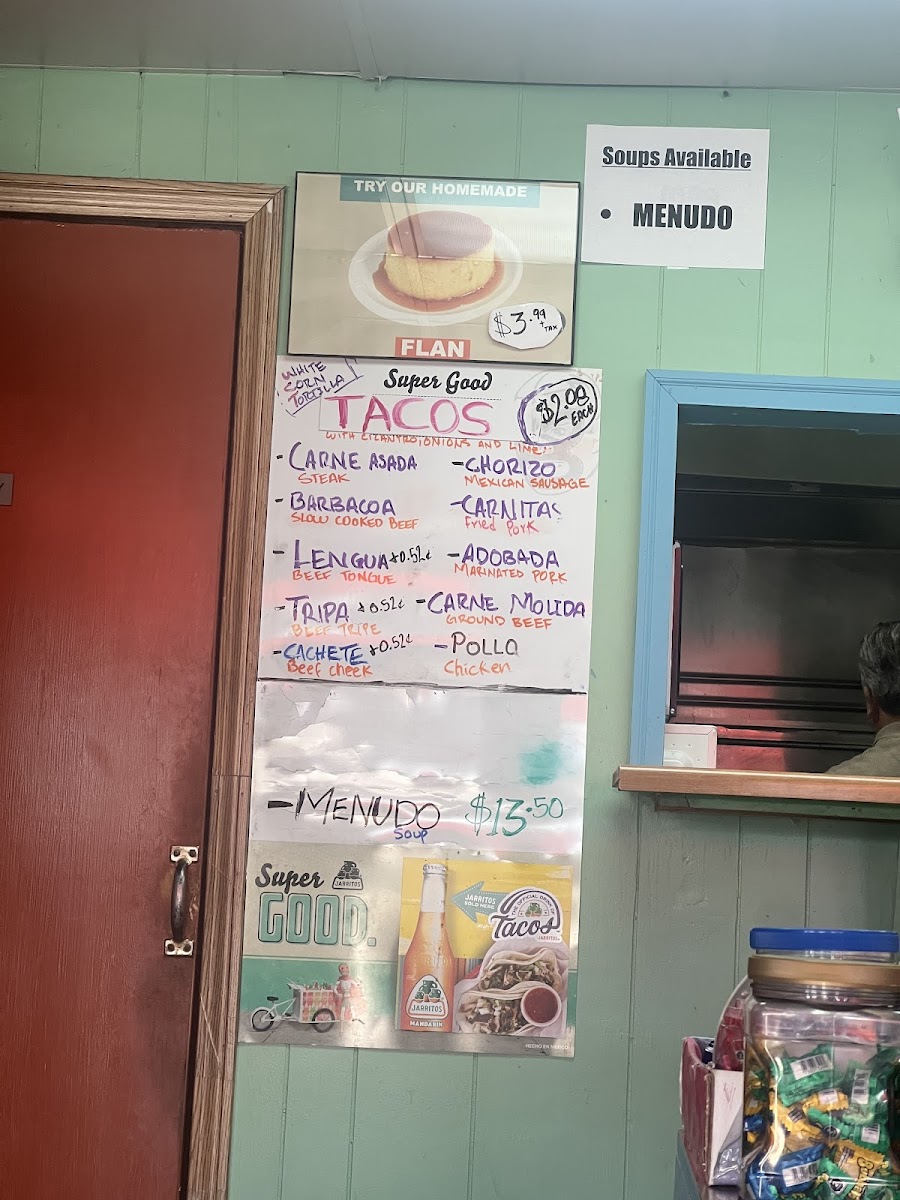 TRY OUR HOMEMADE
$3.99
+ TAX
FLAN
Soups Available
• MENUDO
WHITE
CORN
TORTILLA
Super Good
TACOS
$2.08
EACH
WITH CILANTRO, ONIONS AND LIME
- CARNE ASADA
STEAK
- BARBACOA
SLOW COOKED BEEF
- LENGUA +0.52¢
BEEF TONGUE
- TRIPA +0.52¢
BEEF TRIPE
- CACHETE +0.52¢
Beef cheek
- CHORIZO
MEXICAN SAUSAGE
- CARNITAS
Fried Pork
- ADOBADA
MARINATED PORK
- CARNE MOLIDA
GROUND BEEF
- POLLO
Chicken
- MENUDO $13.50
SOUP
Super
JARRITOS
GOOD.
JARRITOS
SOLD HERE
THE OFFICIAL DRINK OF
Tacos
JARRITOS
JARRITOS
MANDARIN
HECHO EN MEXICO